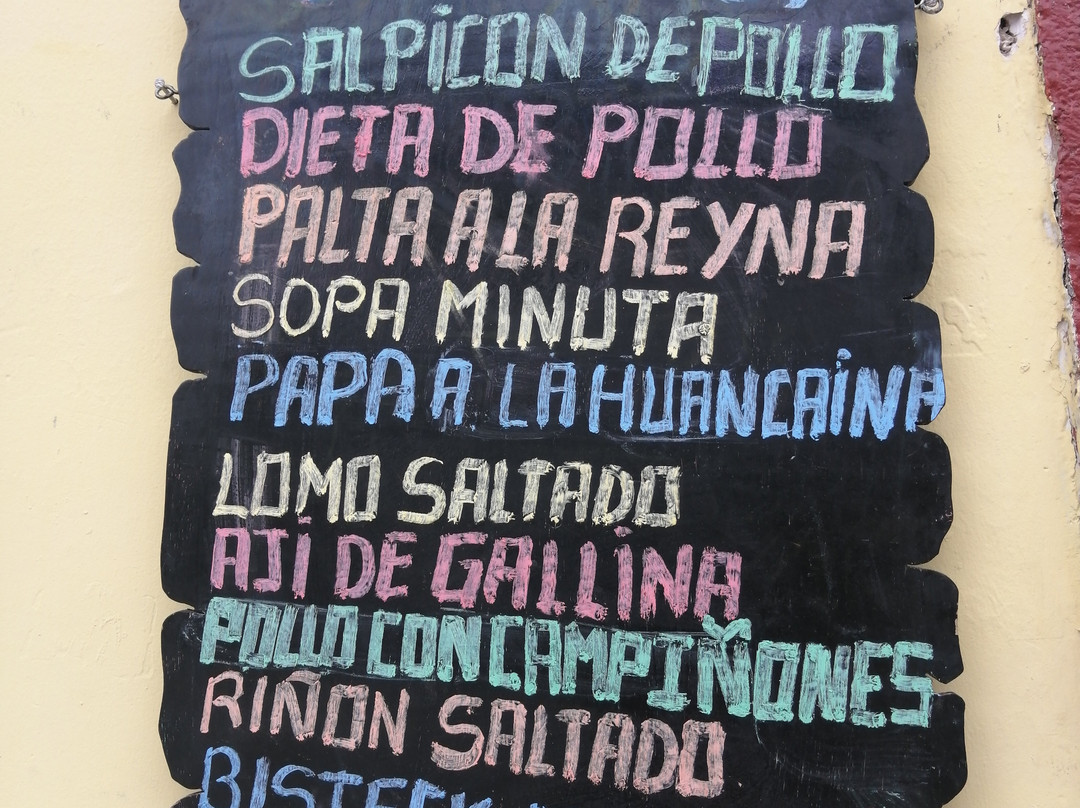 SALPICON DE POLLO
DIETA DE POLLO
PALTA A LA REYNA
SOPA MINUTA
PAPA A LA HUANCAÍNA
LOMO SALTADO
AJÍ DE GALLINA
POLLO CON CAMPIÑONES
RIÑON SALTADO